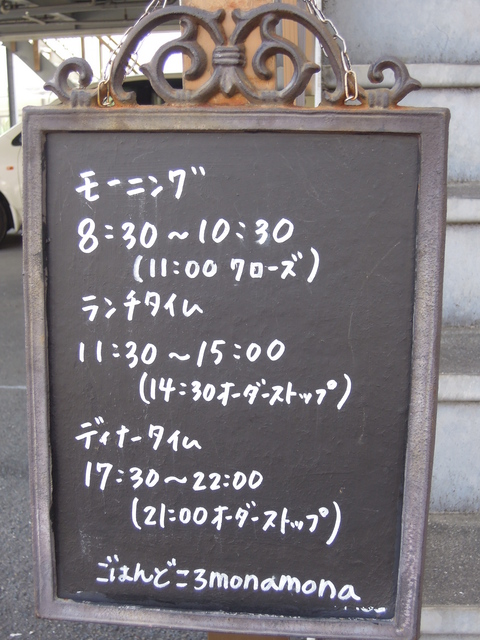 モーニング
8:30～10:30
(11:00 クローズ)
ランチタイム
11:30～15:00
(14:30オーダーストップ)
ディナータイム
17:30～22:00
(21:00オーダーストップ)
ごはんどころmonamona